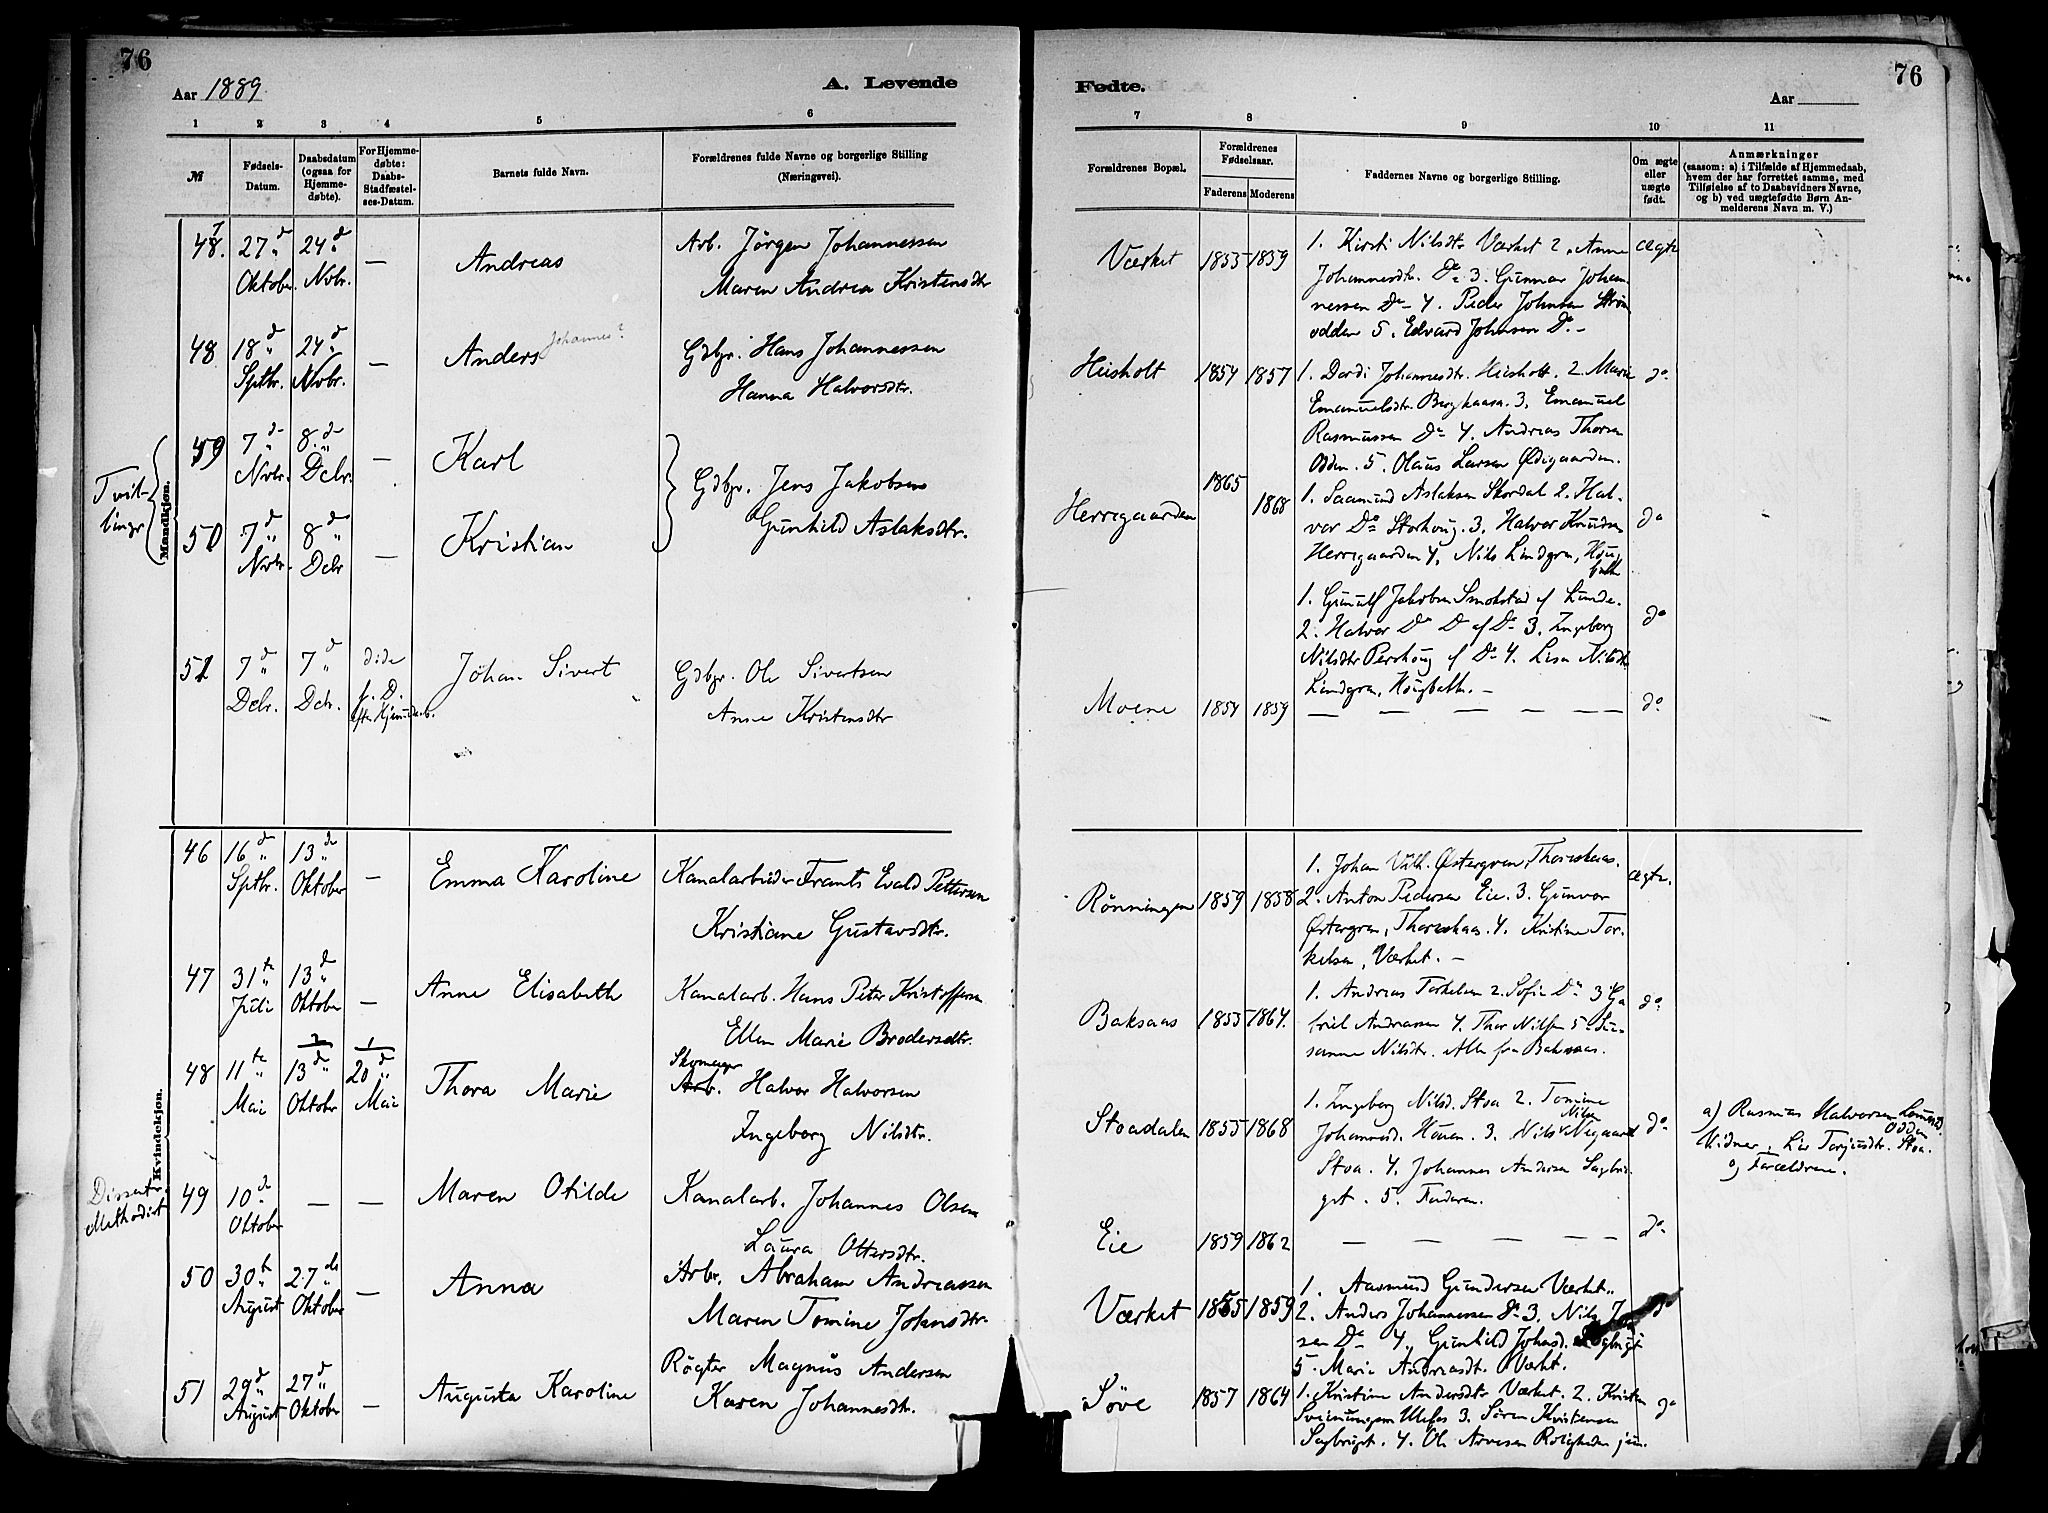 76
Aar 1889
A. Levende
1 2 3 4 5 6
№
Fødsels-Datum.
Daabsdatum (ogsaa for Hjemmedøbte).
For Hjemmedøbte: Daabs-Stadfæstelses-Datum.
Barnets fulde Navn.
Forældrenes fulde Navne og borgerlige Stilling
(Næringsvei).
Mandkjøn.
47. 27d Oktober. 24d Nvbr. — Andreas
Arb. Jörgen Johannessen
Maren Andrea Kristensdtr
48 18d Sptbr. 24d Nvbr. — Anders Johannes?
Gdbr. Hans Johannessen
Hanna Halvorsdtr.
Tvillinger
49 7d Nvbr. 8d Dcbr. — Karl
50 7d Nvbr. 8d Dcbr — Kristian
Gdbr. Jens Jakobsen
Gunhild Aslaksdtr.
51 7d Dcbr. 7d Dcbr. døde f. D. efter Hjemmedaab. Johan Sivert
Gdbr. Ole Sivertsen
Anne Kristensdtr
Kvindekjøn.
46 16d Sptbr. 13d Oktober — Emma Karoline
Kanalarbeider Frants Evald Pettersen
Kristiane Gustavsdtr.
47 31te Juli 13d Oktober — Anne Elisabeth
Kanalarb. Hans Peter Kristoffersen
Ellen Marie Brodersdtr.
48 11te Mai 2 13d Oktober 1 20d Mai Thora Marie
Skomager
Arb. Halvor Halvorsen
Ingeborg Nilsdtr.
Dissenter Methodist
49 10d Oktober — — Maren Otilde
Kanalarb. Johannes Olsen
Laura Ottersdtr.
50 30te August 27d Oktober — Anna
Arbr. Abraham Andreassen
Maren Tomine Johnsdtr.
51 29d August 27d Oktober — Augusta Karoline
Røgter Magnus Andersen
Karen Johannesdtr.
76
Fødte.
Aar
7 8 9 10 11
Forældrenes Bopæl.
Forældrenes Fødselsaar.
Faderens Moderens
Faddernes Navne og borgerlige Stilling.
Om ægte eller uægte født.
Anmærkninger
(saasom: a) i Tilfælde af Hjemmedaab,
hvem der har forrettet samme, med
Tilføielse af to Daabsvidners Navne,
og b) ved uægtefødte Børn Anmelderens Navn m. V.)
Værket 1855 1859
1. Kirsti Nilsdtr Værket 2. Anne Ægte
Johannesdtr. Do 3. Gunnar Johannessen
Do 4. Peder Johnsen
odden 5. Edvard Johnsen Do —
Heisholt 1854 1857
1. Dordi Johannesdtr. Heisholt. 2. Marie do
Emanuelsdtr. Berghaara. 3. Emanuel
Rasmussen Do 4. Andreas Thorsen
Odden. 5. Olaus Larsen Ødegaarden.
Herregaarden 1865 1868
1. Saamund Aslaksen Skordal 2. Halvor
Do Storhoug. 3. Halvor Knudsen do
Herregaarden 4. Nils Lindgren,
1. Gunulf Jakobsen Smokstad af Lunde.
2. Halvor Do Do af Do 3. Ingeborg do
Nilsdtr Pershoug af Do 4. Lisa Nilsdtr.
Lindgren, —
Moene 1854 1859 — — — — — do
Rönningen 1859 1858
1. Johan Vilh. Østergren, Ægte.
2. Anton Pedersen Eie. 3. Gunvor
Østergren, 4. Kristine Torkelsen,
Værket. —
Baksaas 1855 1864.
1. Andreas Torkelsen 2. Sofie Do 3 Gabriel do
Andreassen 4. Thor Nilsen 5. Susanne
Nilsdtr. Alle fra Baksaas.
Stoadalen 1855 1868
1. Ingeborg Nilsd. Stoa 2. Tomine
Johannesd. Houen. 3. Nils Nilsen Nygaard do
Stoa. 4. Johannes Andersen
5. Faderen.
a) Rasmus Halvorsen
Odden
Vidner: Lise Torjusdtr. Stoa.
og Forældrene.
Eie 1859 1862 — — — — — do
Værket 1855 1859
1. Aasmund Gundersen Værket.
2. Anders Johannessen Do 3. Nils do
Do 4. Gunhild Johnsd.
5. Marie Andreasdt. Værket.
Søve 1857 1864
1. Kristine Andersdtr Værket. 2. Kristen do
Sveinungsen Ulefos 3. Søren Kristensen
4. Ole Arvesen Roligheden jun.